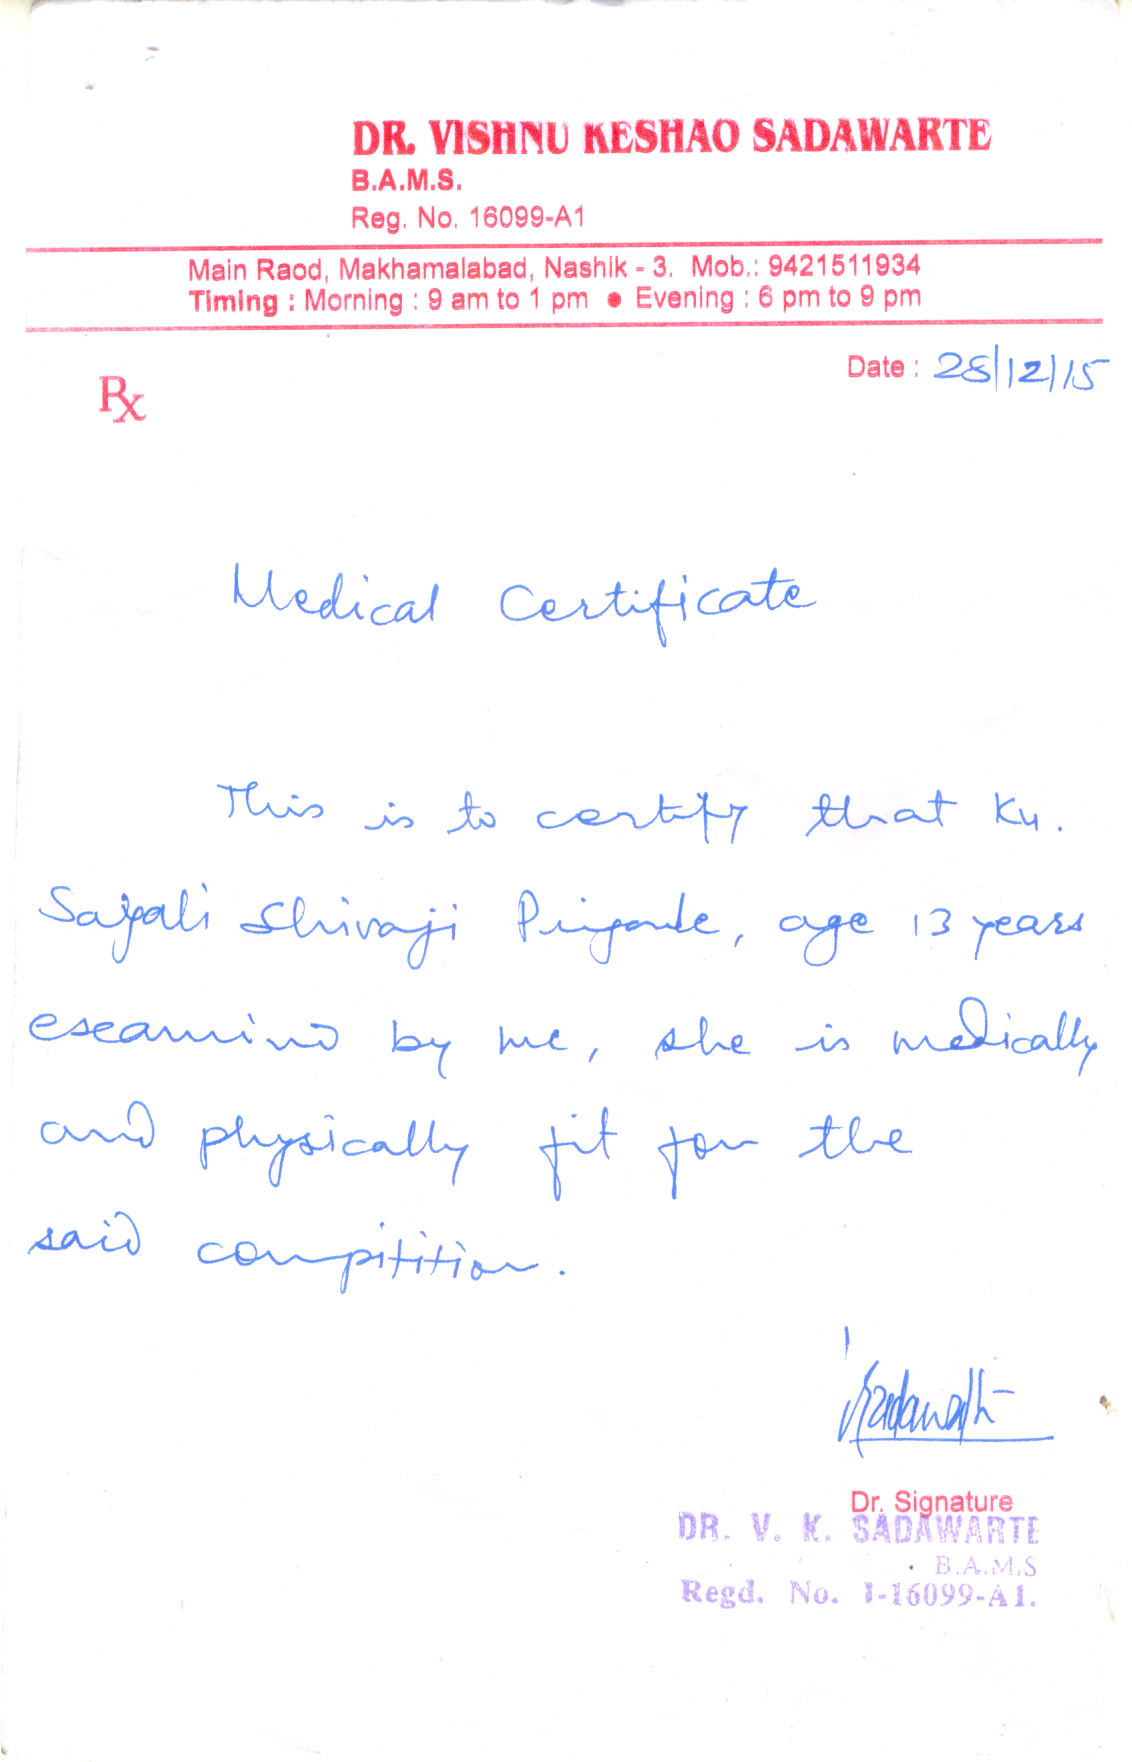 DR. VISHNU KESHAO SADAWARTE
B.A.M.S.
Reg. No. 16099-A1
Main Raod, Makhamalabad, Nashik - 3. Mob.: 9421511934
Timing : Morning : 9 am to 1 pm ● Evening : 6 pm to 9 pm
Date : 28/12/15
Rx
Medical Certificate
This is to certify that Ku.
Sayali Shivaji , age 13 years
by me, she is medically
and physically fit for the
said compitition.
Dr. Signature
DR. V. K. SADAWARTE
B.A.M.S
Regd. No. I-16099-A1.